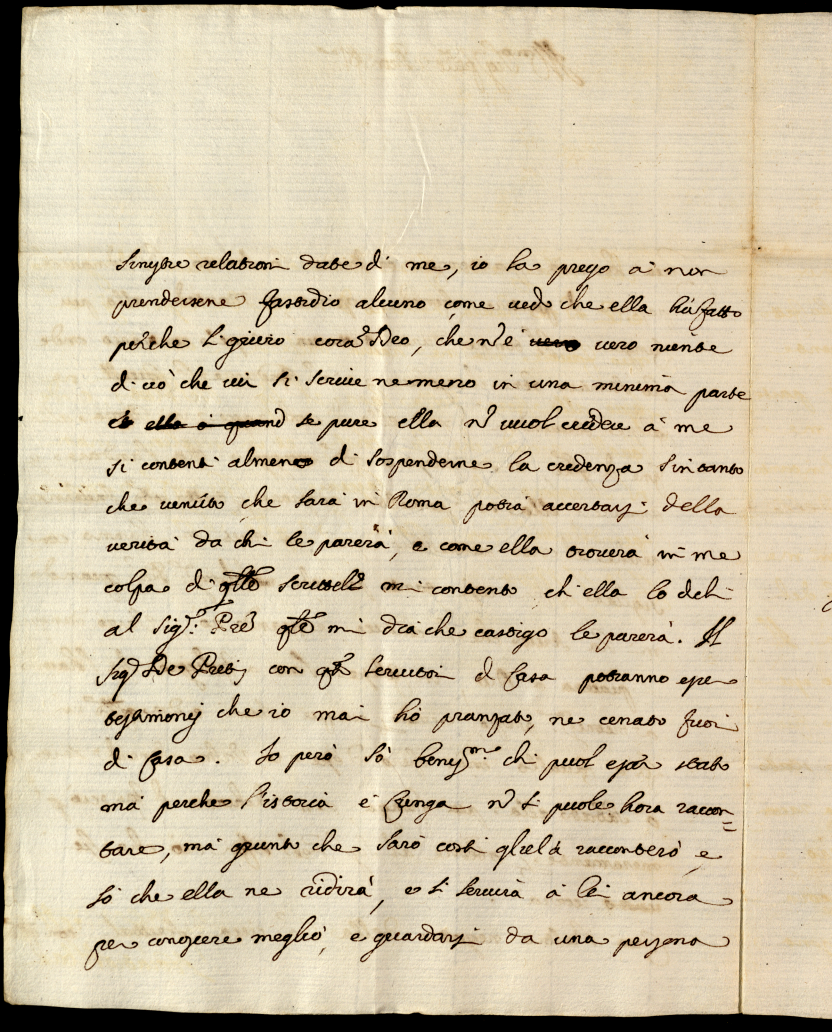 sinistre relationi date di me, io la prego à non
prendersene fastidio alcuno come vedo che ella hà fatto
perche Li giuro coram Deo, che nõ è vero niente
di ciò che vi si scrive nemeno in una minima parte
se pure ella nõ vuol credere à me
si contenti almeno di sospenderne la credenza sin tanto
che venuto che sarà in Roma potrà accertarsi della
verità da chi le parerà, e come ella troverà in me
colpa di scrittele mi contento ch'ella lo dichi
al Sigr. Pre mi dia che castigo le parerà. Il
Sigr De Pretis con servitori di Casa potranno essere
testimonij che io mai hò pranzato, ne cenato fuori
di Casa. Io però sò beniss.mo chi puol esser stato
mà perche l'istoria è longa nõ si puole hora raccon=
tare, mà giunto che sarò costì gliela racconterò e
sò che ella ne riderà, e li servirà à lei ancora
per conoscere meglio, e guardarsi da una persona